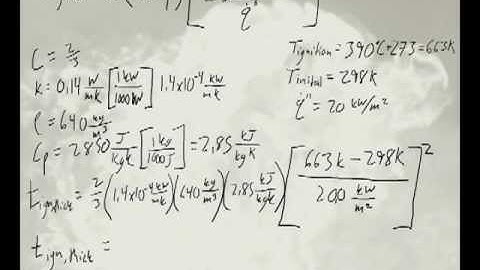 q̇"
C = 2/3
k = 0.14 W/mk [1 kW/1000 W] 1.4x10^-4 kW/mk
ρ = 640 kg/m³
Cp = 2850 J/kgk [1 kJ/1000J] = 2.85 kJ/kgk
Tignition = 390°C+273=663k
Tinitial = 298k
q̇" = 20 kW/m²
tign,thick = 2/3 (1.4x10^-4 kW/mk)(640 kg/m³)(2.85 kJ/kgk)[663k - 298k / 20.0 kW/m²]²
tign, thick =